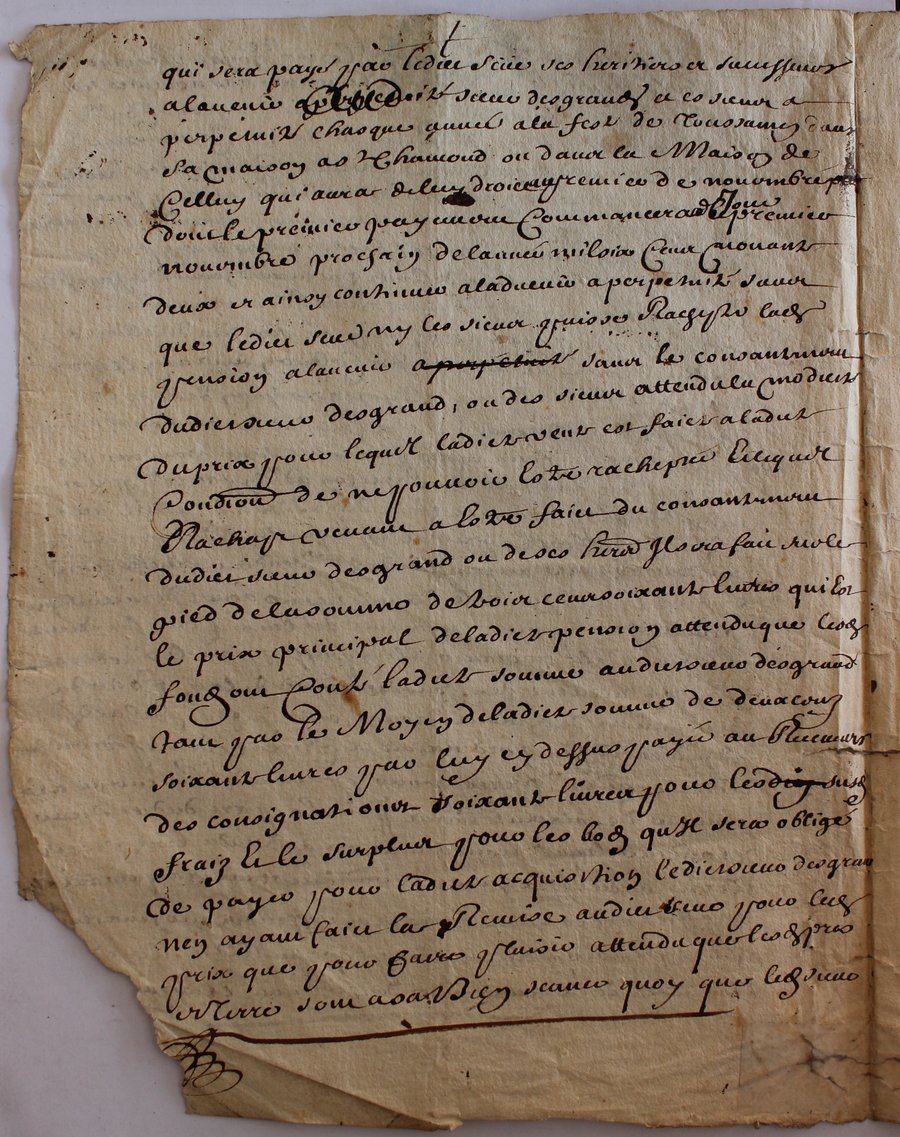 qui sera payé par ledict sieur ses heritiers et successeurs
aladvenir audict sieur desgrand et es sieurs a
perpetuité chasque année ala feste de Toussaincts dans
sa maison a St Chamond ou dans la Maison de
Celluy qui aura de luy droict premier de novembre
dont le premier payement Commancera le Jour premier
novembre prochain de lannée mil six Cens nonante
deux et ainsy continuer aladvenir a perpetuité sans
que ledict sieur ny les siens puisse Rachepter lad
pension aladvenir a perpetuité sans le consantement
dudict sieur desgrand, ou des siens attendu la modicité
du prix pour lequel ladicte vente est faicte a ladicte
Condition de ne pouvoir estre racheptée Et lequel
Rachapt venant a estre faict du consantement
dudict sieur desgrand ou de ses herers Il sera faict sur le
pied de la somme de trois cens soixante livres qui Est
le prix principal de ladicte pension attendu que lesd
fonds ont Couté ladicte somme audict sieur desgrand
tant par le Moyen de ladicte somme de deux cens
soixante livres par luy cy dessus payée au Receveur
des consignations soixante livres pour lesdits susd
fraiz Et le surplus pour les lods qu'Il sera obligé
de payer pour ladicte acquisition ledict sieur desgrand
n'en ayant faict la Remise audict sieur pour led
prix que pour faire plaisir attendu que lesd prés
et terre sont a sa Bien seance quoy que led sieur